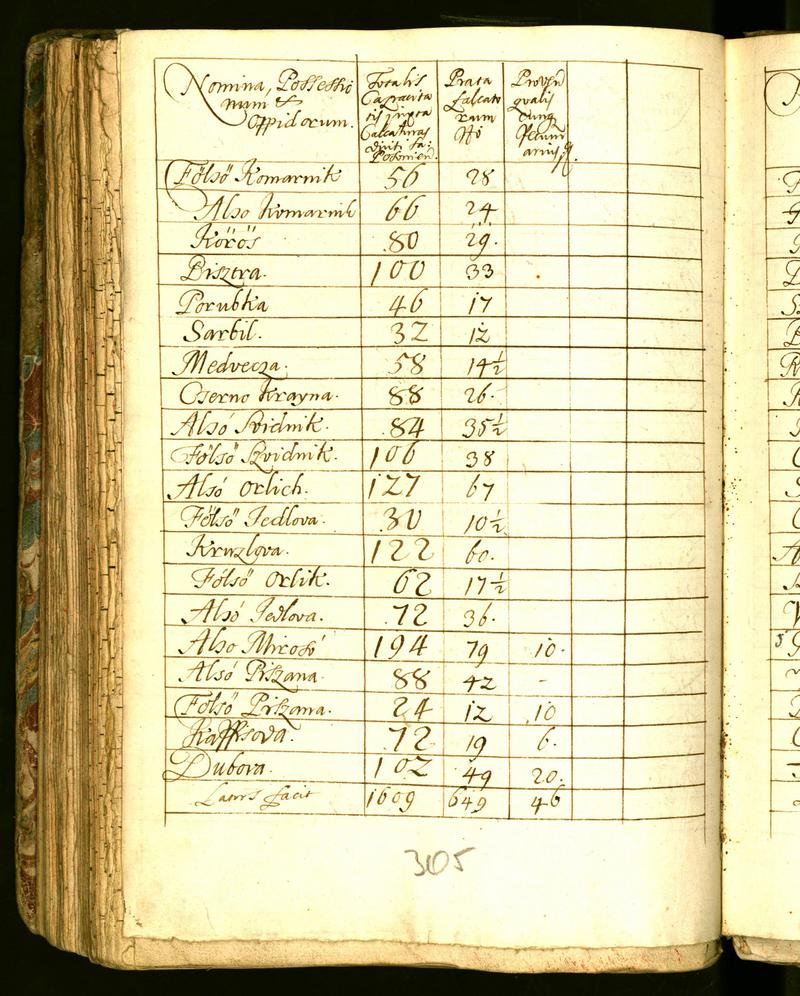 Nomina, Possessio
num &
Oppidorum.
Totalis
Capacita
tis juxta
Calcaturas
Posonien.
Prata
falcato
rum
No
Proven
qualis
cunq
Pecuni
arius
Fölsö Komarnik 56 28
Also Komarnik 66 24
Körös 80 29.
Bisztra. 100 33
Porubka 46 17
Sarbil. 32 12
Medvecza. 58 14½
Cserno Krayna. 88 26.
Alsó Svidnik. 84 35½
Fölsö Szvidnik. 106 38
Alsó Orlich. 127 67
Fölsö Jedlova. 30 10½
Kruzlova. 122 60.
Fölsö Orlik. 62 17½
Alsó Jedlova. 72 36.
Also Mirosó 194 79 10.
Alsó Piszana. 88 42 -
Fölsö Piszana. 24 12 10
72 19 6.
Dubova. 102 49 20.
Lateris facit 1609 649 46
305